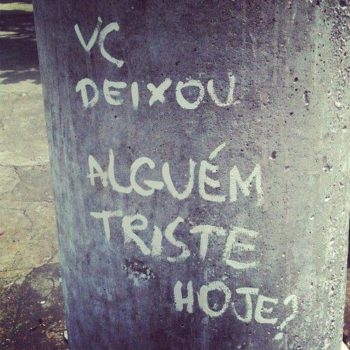 VÇ
DEIXOU
ALGUÉM
TRISTE
HOJE?